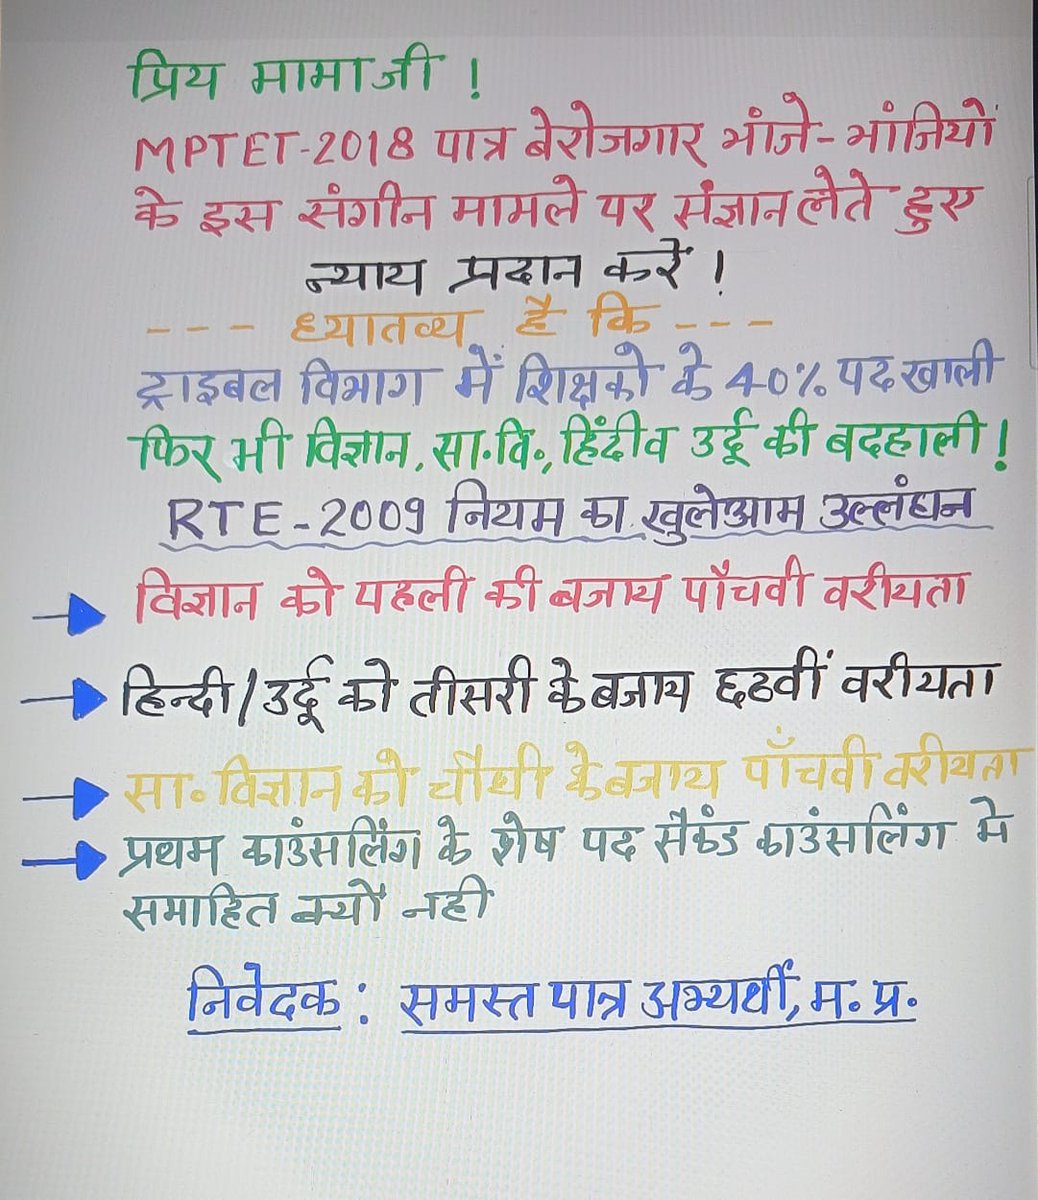 प्रिय मामाजी !
MPTET-2018 पात्र बेरोजगार भांजे-भांजियों
के इस संगीन मामले पर संज्ञान लेते हुए
न्याय प्रदान करें !
--- ध्यातव्य है कि ---
ट्राइबल विभाग में शिक्षको के 40% पद खाली
फिर भी विज्ञान, सा.वि., हिंदी व उर्दू की बदहाली !
RTE-2009 नियम का खुलेआम उल्लंघन
विज्ञान को पहली की बजाय पाँचवी वरीयता
हिन्दी/उर्दू को तीसरी के बजाय छठवीं वरीयता
सा॰ विज्ञान को चौथी के बजाय पाँचवी वरीयता
प्रथम काउंसलिंग के शेष पद सैकंड काउंसलिंग मे
समाहित क्यों नही
निवेदक : समस्त पात्र अभ्यर्थी, म. प्र.